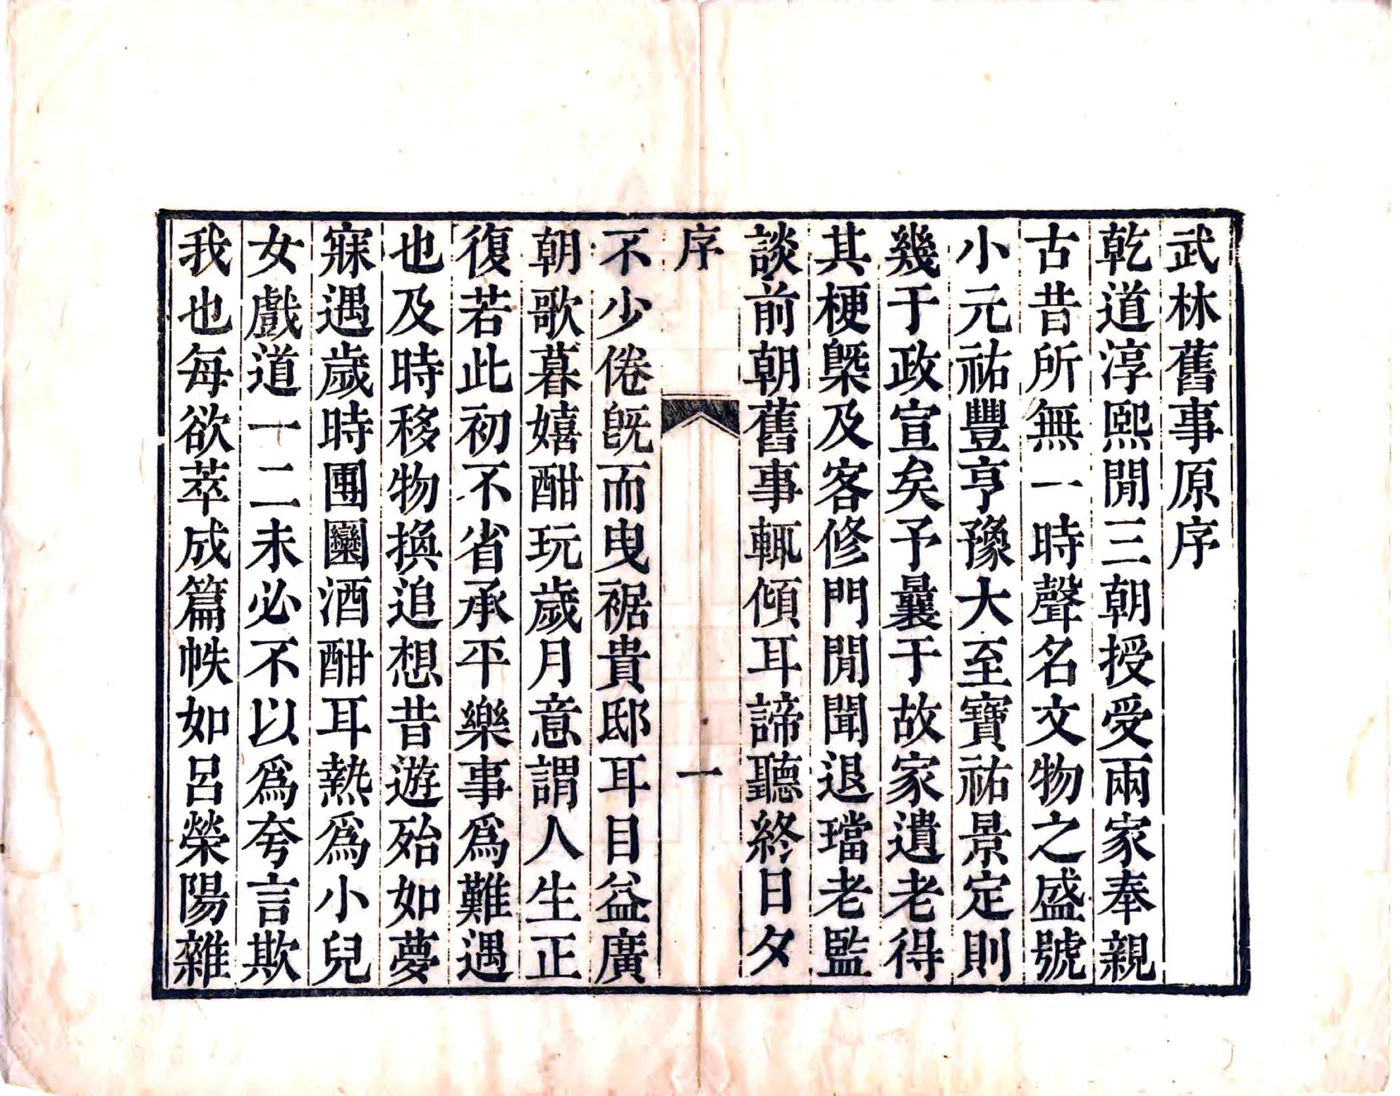 武林舊事原序
乾道淳熙閒三朝授受兩家奉親
古昔所無一時聲名文物之盛號
小元祐豐亨豫大至寶祐景定則
幾于政宣矣予曩于故家遺老得
其梗槩及客修門閒聞退璫老監
談前朝舊事輒傾耳諦聽終日夕
序
一
不少倦旣而曳裾貴邸耳目益廣
朝歌暮嬉酣玩歲月意謂人生正
復若此初不省承平樂事爲難遇
也及時移物換追想昔遊殆如夢
寐遇歲時團圞酒酣耳熱爲小兒
女戲道一二未必不以爲夸言欺
我也每欲萃成篇帙如呂榮陽雜